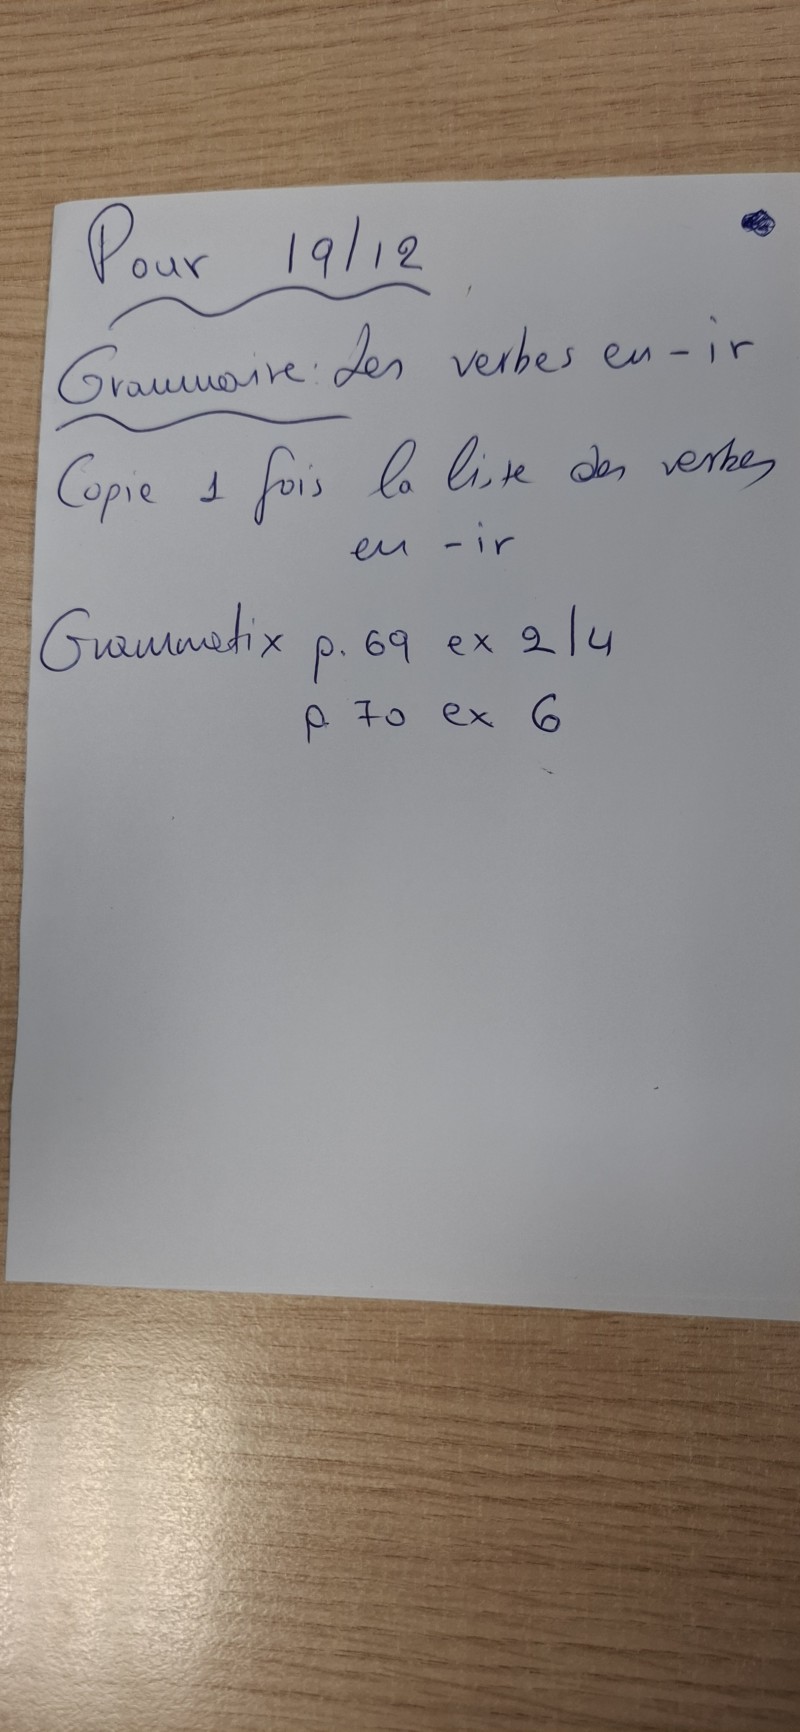 Pour 19/12
Grammaire: Les verbes en -ir
Copie 1 fois la liste des verbes
en -ir
Grammatix p. 69 ex 2/4
p. 70 ex 6